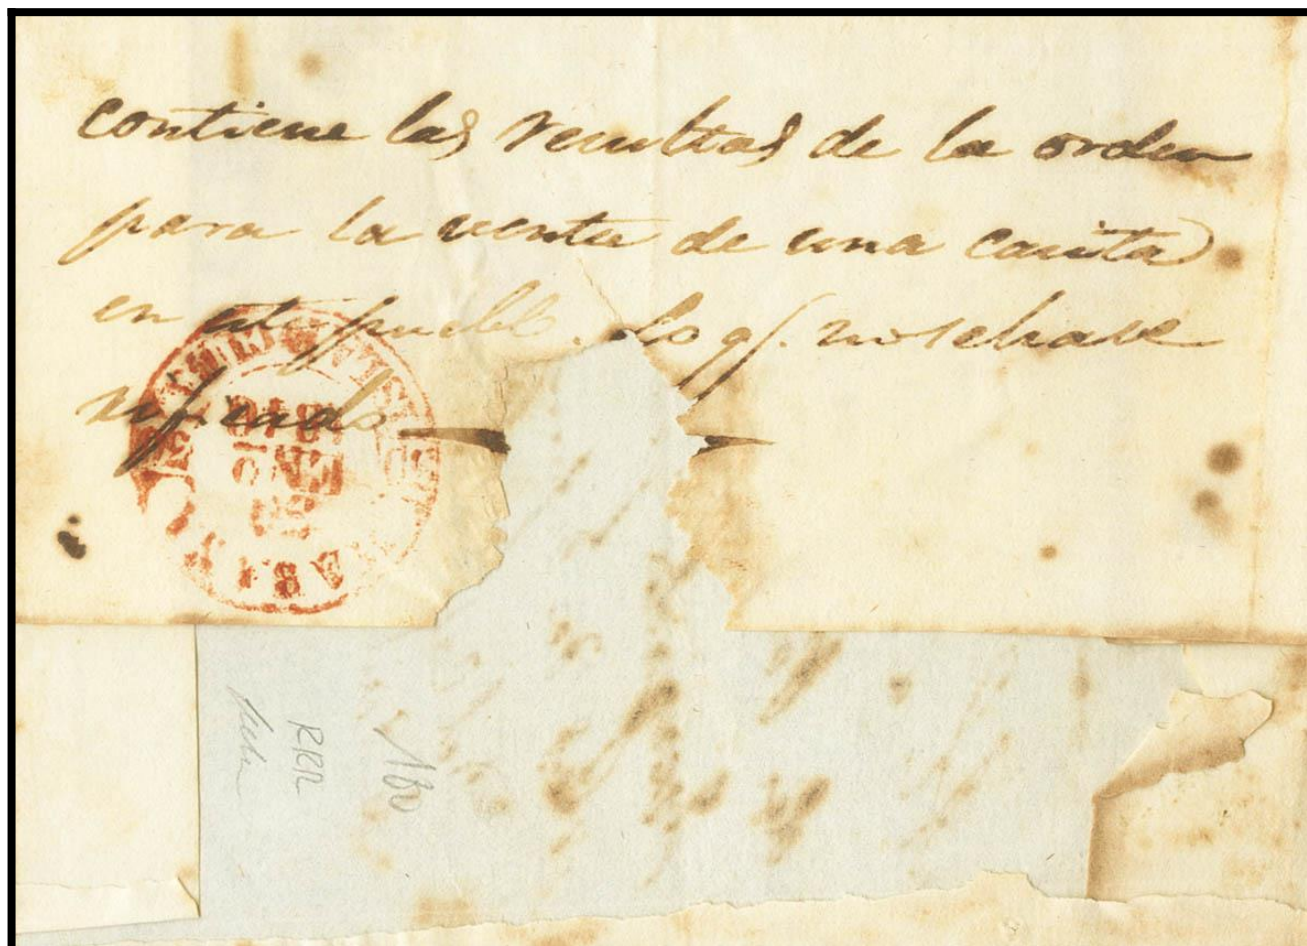 contiene las resultas de la orden
para la venta de una casita
en este pueblo. Lo qᵉ. no se ha ve
rificado
RRR
180